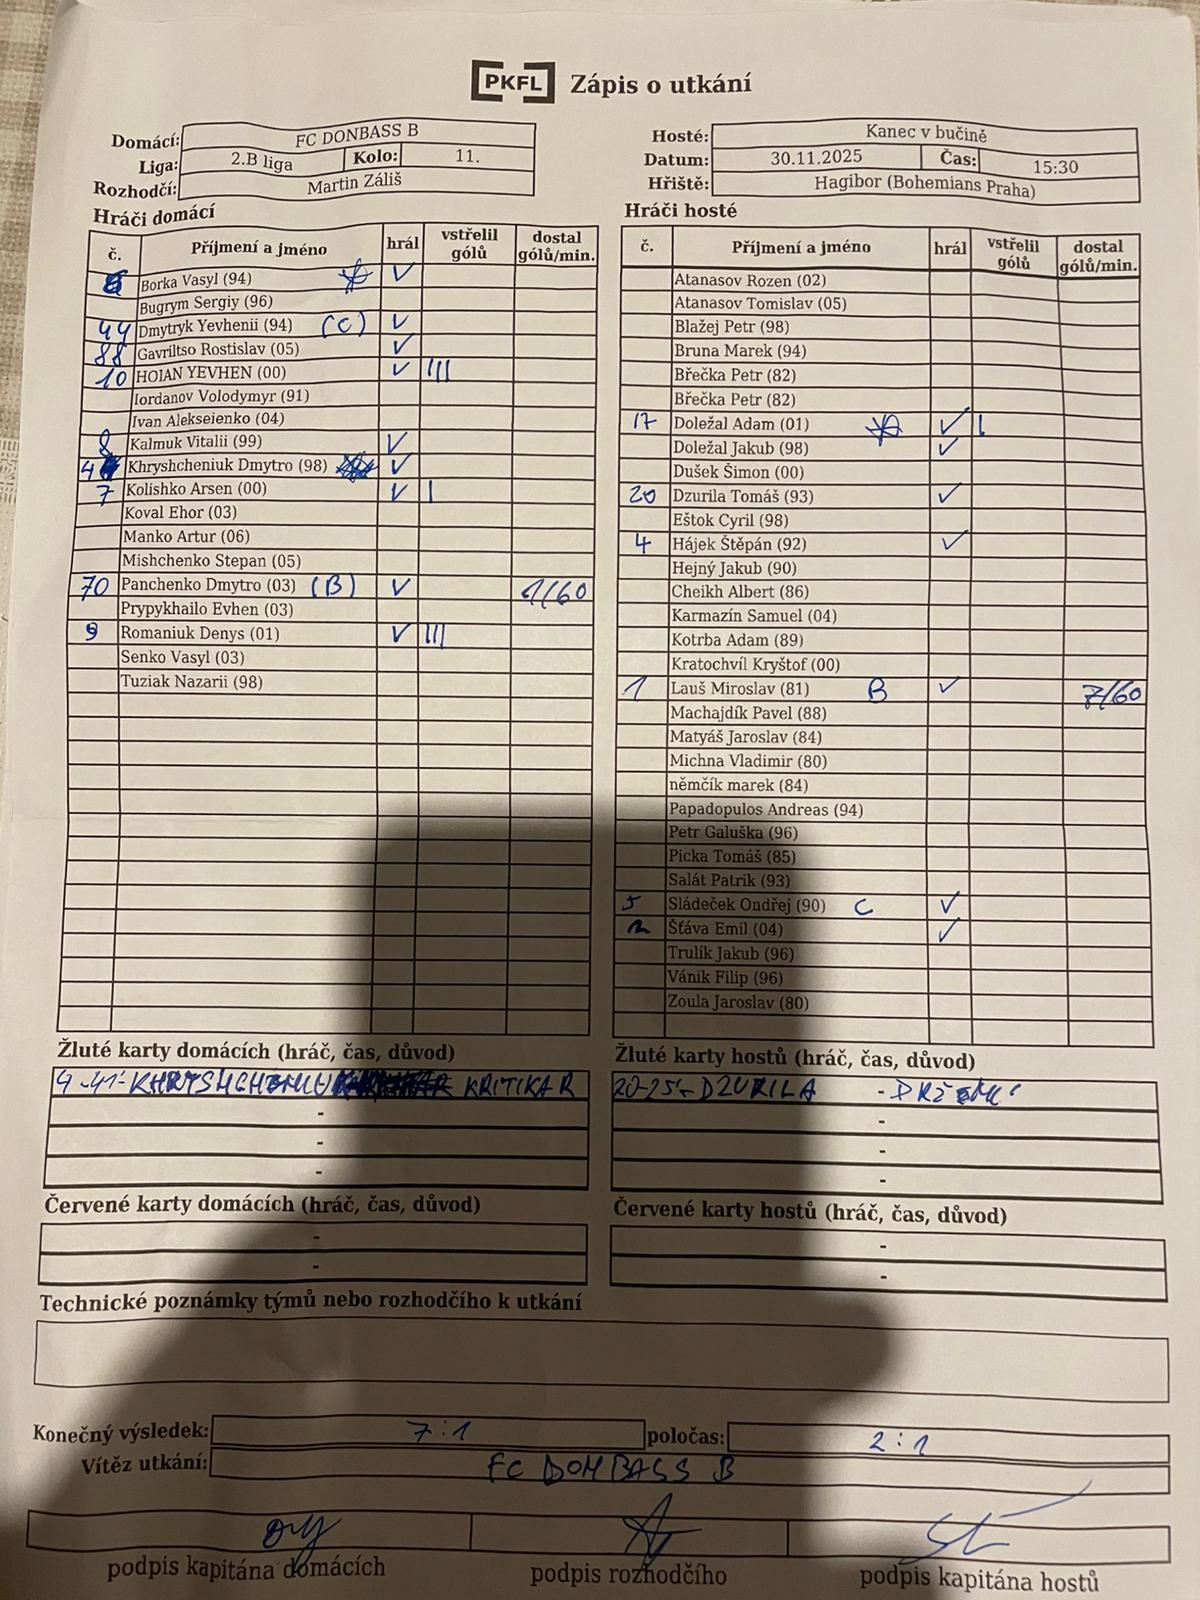 PKFL Zápis o utkání
Domácí: FC DONBASS B
Liga: 2.B liga Kolo: 11.
Rozhodčí: Martin Záliš
Hosté: Kanec v bučině
Datum: 30.11.2025 Čas: 15:30
Hřiště: Hagibor (Bohemians Praha)
Hráči domácí
č. Příjmení a jméno hrál vstřelil gólů dostal gólů/min.
Borka Vasyl (94) ✓
Bugrym Sergiy (96)
44 Dmytryk Yevhenii (94) (C) ✓
88 Gavriltso Rostislav (05) ✓
10 HOIAN YEVHEN (00) ✓ |||
Iordanov Volodymyr (91)
Ivan Alekseienko (04)
8 Kalmuk Vitalii (99) ✓
4 Khryshcheniuk Dmytro (98) ✓
7 Kolishko Arsen (00) ✓ |
Koval Ehor (03)
Manko Artur (06)
Mishchenko Stepan (05)
70 Panchenko Dmytro (03) (B) ✓ 1/60
Prypykhailo Evhen (03)
9 Romaniuk Denys (01) ✓ |||
Senko Vasyl (03)
Tuziak Nazarii (98)
Hráči hosté
č. Příjmení a jméno hrál vstřelil gólů dostal gólů/min.
Atanasov Rozen (02)
Atanasov Tomislav (05)
Blažej Petr (98)
Bruna Marek (94)
Břečka Petr (82)
Břečka Petr (82)
17 Doležal Adam (01) ✓ |
Doležal Jakub (98) ✓
Dušek Šimon (00)
20 Dzurila Tomáš (93) ✓
Eštok Cyril (98)
4 Hájek Štěpán (92) ✓
Hejný Jakub (90)
Cheikh Albert (86)
Karmazín Samuel (04)
Kotrba Adam (89)
Kratochvíl Kryštof (00)
1 Lauš Miroslav (81) B ✓ 7/60
Machajdík Pavel (88)
Matyáš Jaroslav (84)
Michna Vladimir (80)
němčík marek (84)
Papadopulos Andreas (94)
Petr Galuška (96)
Picka Tomáš (85)
Salát Patrik (93)
5 Sládeček Ondřej (90) C ✓
Šťáva Emil (04) ✓
Trulík Jakub (96)
Vánik Filip (96)
Zoula Jaroslav (80)
Žluté karty domácích (hráč, čas, důvod)
4 - 41' - KRITIKA R
-
-
-
Žluté karty hostů (hráč, čas, důvod)
20-25'- DZURILA - DRŽENÍ
-
-
-
Červené karty domácích (hráč, čas, důvod)
-
-
Červené karty hostů (hráč, čas, důvod)
-
-
Technické poznámky týmů nebo rozhodčího k utkání
Konečný výsledek: 7:1 poločas: 2:1
Vítěz utkání: FC DOMBASS B
podpis kapitána domácích podpis rozhodčího podpis kapitána hostů